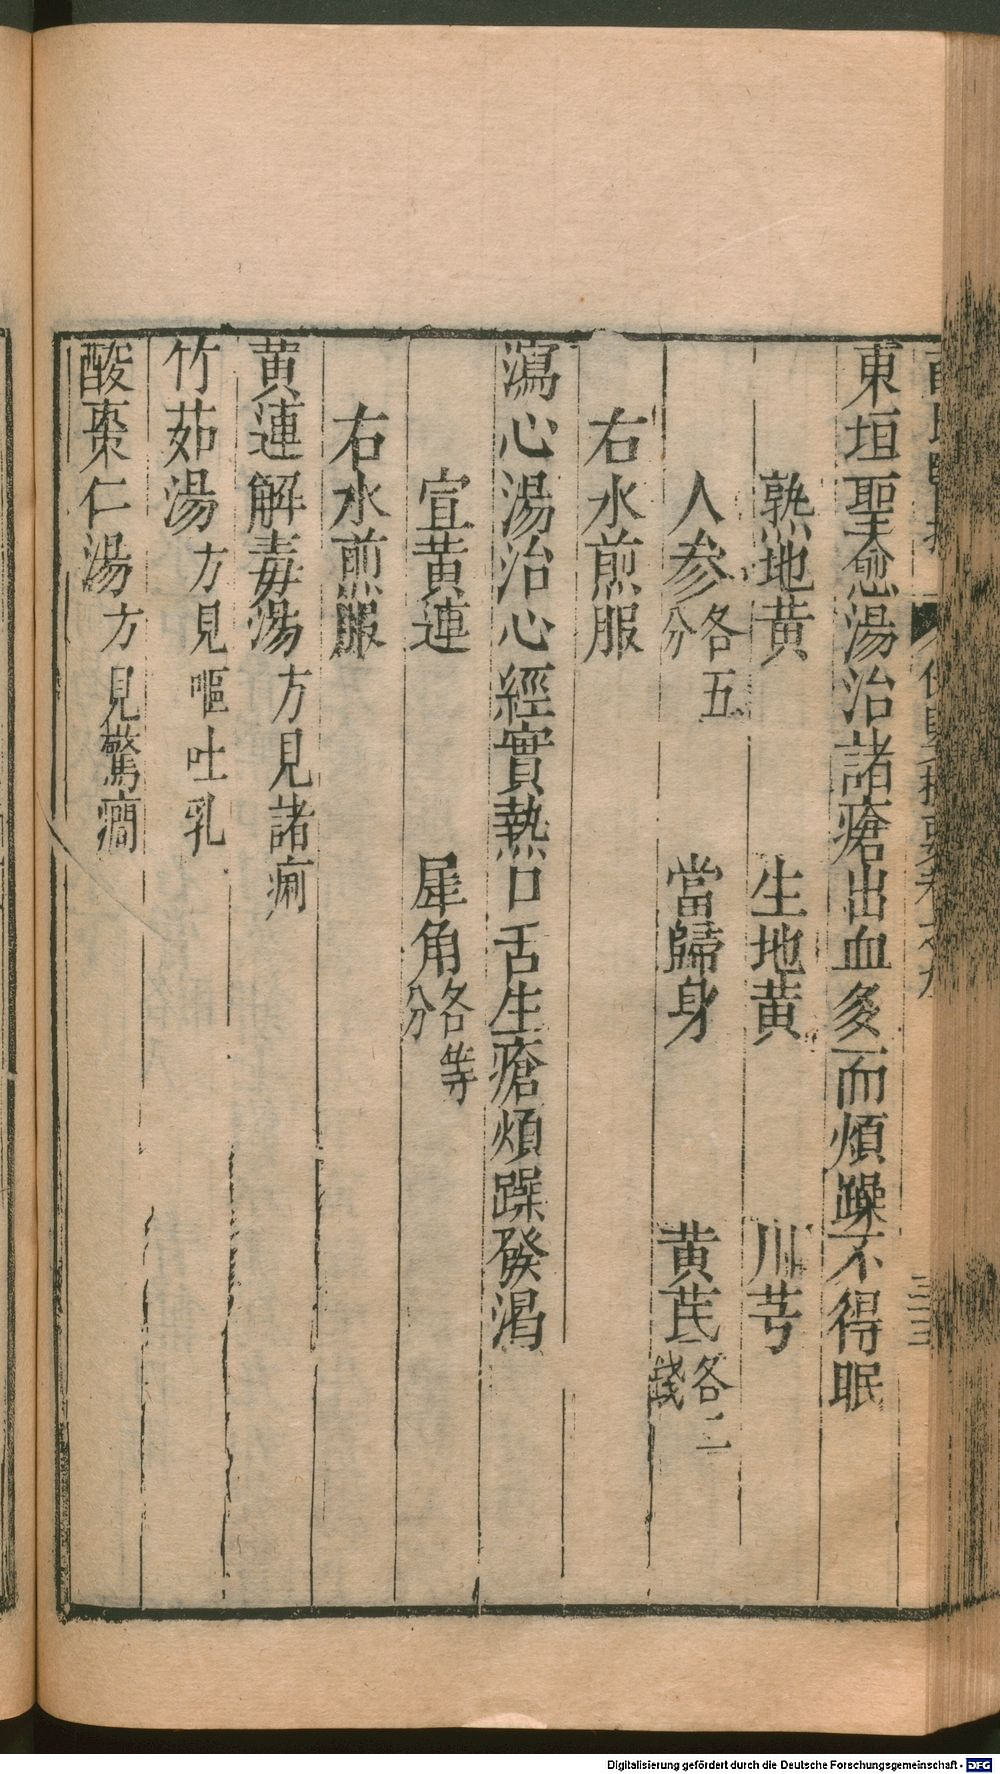 東垣聖愈湯治諸瘡出血多而煩躁不得眠
熟地黄 生地黄 川芎
人参各五分 當歸身 黄芪各二錢
右水煎服
瀉心湯治心經實熱口舌生瘡煩躁發渴
宣黄連 犀角各等分
右水煎服
黄連解毒湯方見諸痢
竹茹湯方見嘔吐乳
酸棗仁湯方見驚癇
Digitalisierung gefördert durch die Deutsche Forschungsgemeinschaft - DFG